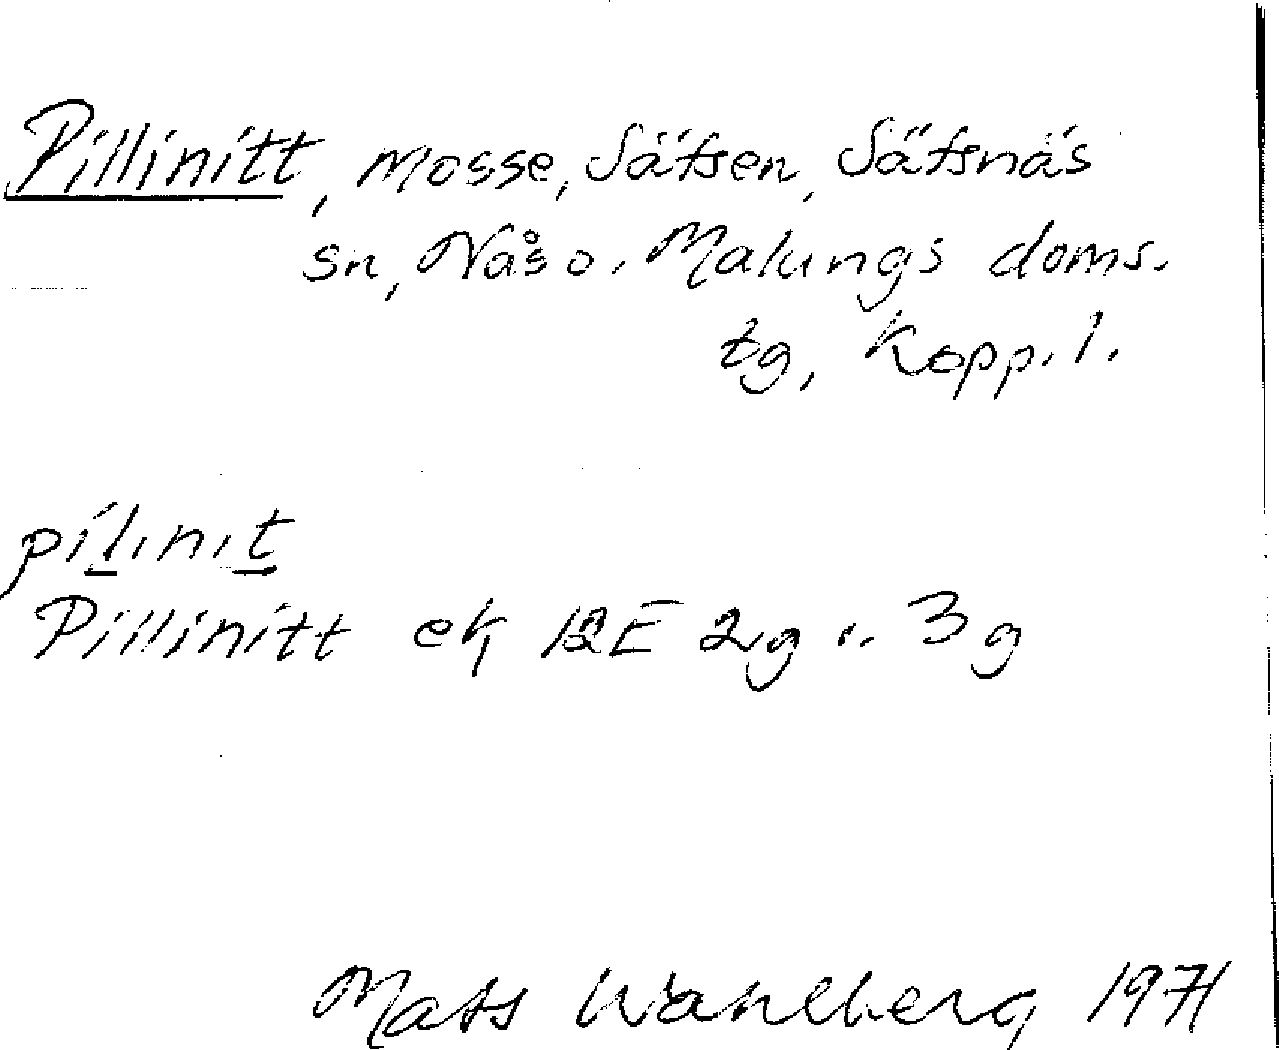 Pillinitt, mosse, Sätsen, Sätsnäs
sn, Nås o. Malungs doms.
tg, Kopp. l.
pílinit
Pillinitt ek 12E 2g o. 3g
Mats Wahlberg 1971